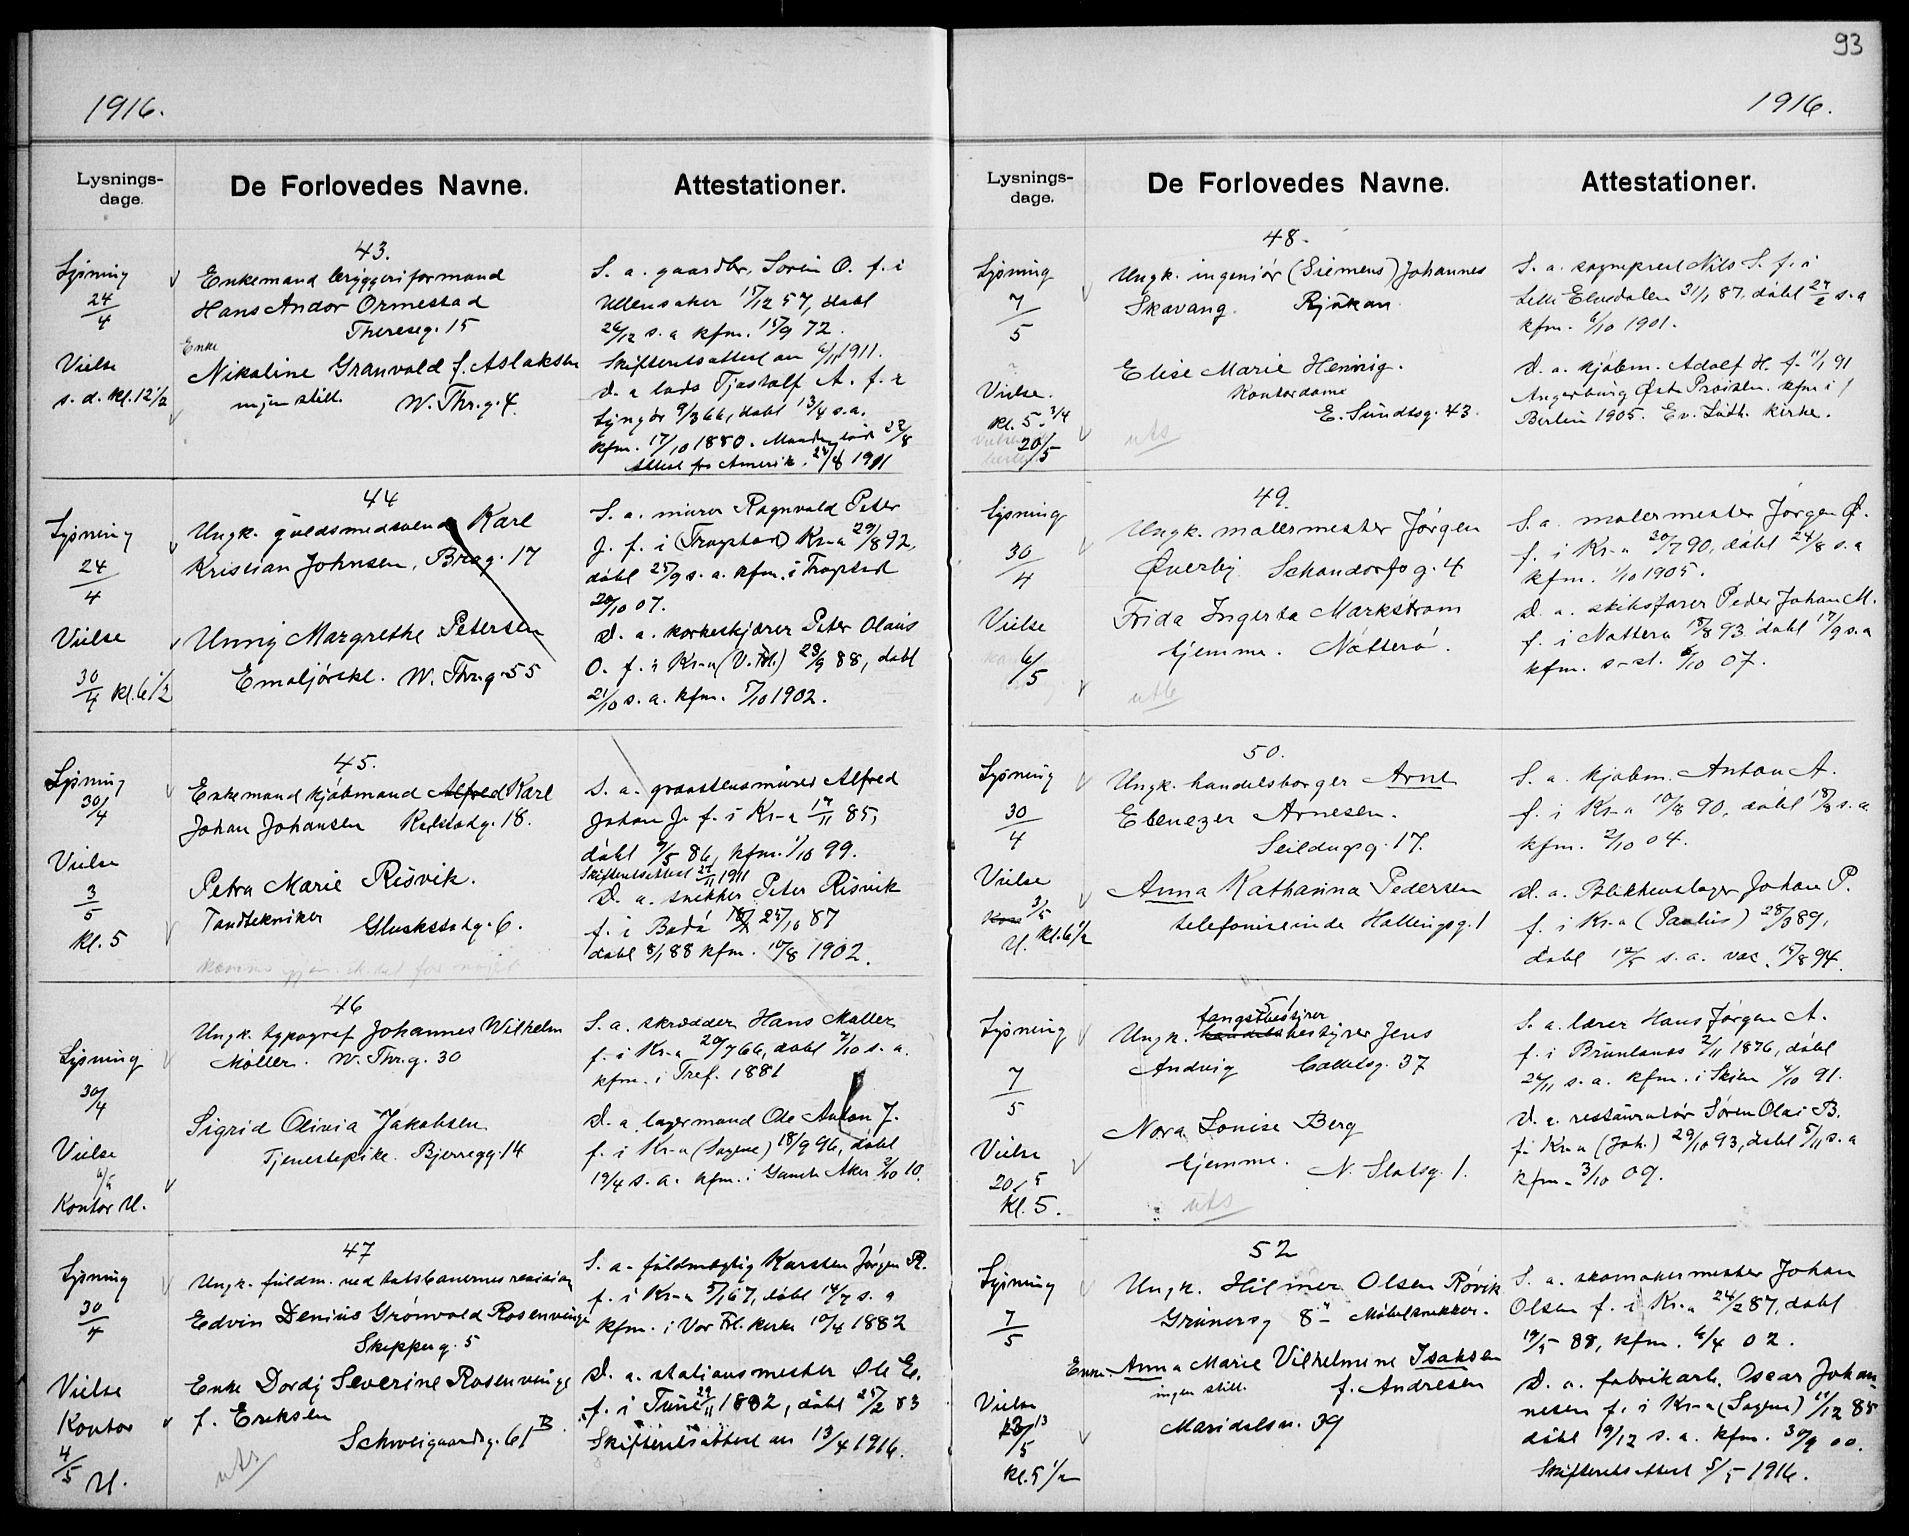 93
1916.
1916.
Lysnings-
dage.
De Forlovedes Navne.
Attestationer.
43.
Lysning
24/4
Vielse
s. d. kl. 12 1/2
Enkemand bryggeriformand
Hans Andor Ormestad
Theresesg. 15
Enke
Nikoline Granvold f. Aslaksen
ingen still. W. Thr.g. 4
S. a. gaardbr. Soren O. f. i
Ullensaker 15/12 57, døbt
26/12 s. a kfm. 15/9 72.
Skifteretsattest av 6/11 1911.
D. a lods Tjostolf A. f. i
Lyngør 9/3 66, døbt 13/4 s. a.
kfm. 17/10 1880.
Attest fra Amerik. 1911
44
Lysning
24/4
Vielse
30/4 kl. 6 1/2
Ungk. guldsmedsvend Karl
Kristian Johnsen, 17
Unnig Margrethe Petersen
Emaljørske. W. Thr.g. 55
S. a. murer Ragnvald Peter
J. f. i (Trøgstad) Kr-a 29/8 92,
døbt 25/9 s. a. kfm. i Trøgstad
20/10 07.
D. a. korkeskjærer Peter Olaus
O. f. i Kr-a (V. Frl.) 23/9 88, døbt
21/10 s. a. kfm. 5/10 1902.
45.
Lysning
30/4
Vielse
3/5
kl. 5
Enkemand kjøbmand Alfred Karl
Johan Johansen 18.
Petra Marie Risvik.
Tandtekniker 6.
S. a. graastensmurer Alfred
Johan J. f. i Kr-a 17/11 85,
døbt 9/5 86, kfm. 1/10 99.
Skifteretsattest 1911
D. a. snekker Peter Risvik
f. i Bodø 25/10 87
døbt 8/1 88 kfm. 10/8 1902.
46
Lysning
30/4
Vielse
Kontor U.
Ungk. typograf Johannes Wilhelm
Møller. W. Thr.g. 30
Sigrid Olivia Jakobsen
Tjenestepike. Bjerregg. 14
S. a. skrædder Hans Møller
f. i Kr-a 20/7 66, døbt 7/10 s. a.
kfm. i Tref. 1881
D. a. lagermand Ole Anton J.
f. i Kr-a (Sagene) 18/9 96, døbt
19/4 s. a. kfm. i Gamle Aker 2/10 10.
47
Lysning
30/4
Vielse
Kontor
4/5 U.
Ungk. fuldm. ved statsbanernes revision
Edvin Denius Grønvold Rosenvinge
Skipperg. 5
Enke Dordj Severine Rosenvinge
f. Eriksen
Schweigaardsg. 61 B
uts
S. a. fuldmægtig Karsten Jørgen R.
f. i Kr-a 5/1 67, døbt 14/7 s. a
kfm. i Vor Frl. kirke 10/4 1882
D. a. stationsmester Ole E.
f. i Tune 29/11 1882, døbt 25/2 83
Skifteretsattest av 13/4 1916.
Lysnings-
dage.
De Forlovedes Navne.
Attestationer.
48.
Lysning
7/5
Vielse.
kl. 5 3/4
20/5
Ungk. ingeniør (Siemens) Johannes
Skavang. Rjukan
Elise Marie Hennig.
Kontordame
E. Sundtsg. 43.
uts
S. a. sogneprest Nils S. f. i
Lille Elvedalen 31/1 87, døbt 27/2 s. a
kfm. 6/10 1901.
D. a. kjøbm. Adolf H. f. 11/1 91
Angerburg Øst Preusen. kfm i
Berlin 1905. Ev. Luth. kirke.
49.
Lysning
30/4
Vielse
6/5
Ungk. malermester Jørgen
Øverby Schandorfsg. 4
Frida Ingerta Markstrøm
hjemme. Nøtterø.
uts
S. a. malermester Jørgen Ø.
f. i Kr-a 30/7 90, døbt 24/8 s. a
kfm. 1/10 1905.
D. a. skibsfører Peder Johan M.
f. i Nøtterø 15/8 93 døbt 17/9 s. a
kfm. s-st. 6/10 07.
50.
Lysning
30/4
Vielse
3/5
U. kl. 6 1/2
Ungk. handelsborger Arne
Ebenezer Arnesen.
Seildugsg. 17.
Anna Katharina Pedersen
telefoniserinde Hallingsg. 1
S. a. kjøbm. Anton A.
f. i Kr-a 10/8 90, døbt s. a
kfm. 2/10 04.
D. a. Blikkenslager Johan P.
f. i Kr-a (Paulus) 89,
døbt s. a. vac. 15/8 94.
51
Lysning
7/5
Vielse
20/5
Kl. 5.
fangstbestyrer
Ungk. handelsbestyrer Jens
Andvig Colletsg. 37
Nora Louise Berg
hjemme. N. Slotsg. 1.
uts
S. a. lærer Hans Jørgen A.
f. i Brunlanes 2/11 1876, døbt
26/11 s. a. kfm. i Skien 4/10 91.
D. a. restauratør Søren Olai B.
f. Kr-a (Joh.) 29/10 93, døbt 5/11 s. a
kfm. 3/10 09.
52
Lysning
7/5
Vielse
13/5
kl. 5 1/2
Ungk. Hilmer Olsen Røvik
Grünersg 8 Møbelsnekker.
Enke. Anna Marie Vilhelmine Isaksen
ingen still. f. Andresen
Maridalsv. 39
S. a. skomakermester Johan
Olsen f. i Kr.a 24/2 87, døbt
19/5 88, kfm. 6/4 02.
D. a. fabrikarb. Oscar Johan-
nesen f. i Kr-a (Sagene) 11/12 85
døbt 19/12 s. a. kfm. 30/9 00.
Skifteretsattest 5/5 1916.